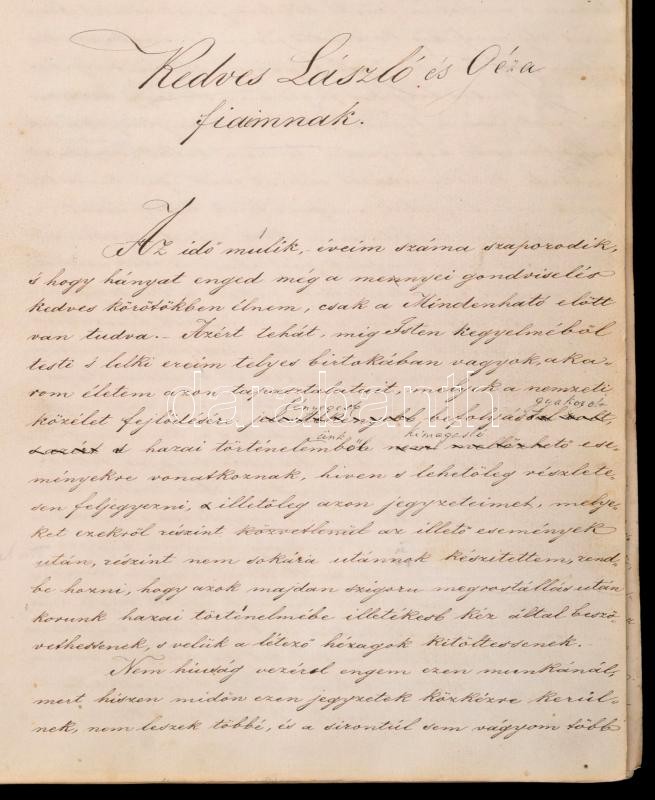 Kedves László és Géza
fiaimnak.
Az idő múlik, éveim száma szaporodik,
s hogy hányat enged még a mennyei gondviselés
kedves körötökben élnem, csak a Mindenható előtt
van tudva. – Azért tehát, míg Isten kegyelméből
testi s lelki erőim telyes birtokában vagyok, aka-
rom életem azon tapasztalatait, melyek a nemzeti
közélet fejlődésére befolyással volt,
gyakorolt
s hazai történelemből nem mellőzhető ese-
ünk kimagasló
ményekre vonatkoznak, hiven s lehetőleg részlete-
sen feljegyezni, illetőleg azon jegyzeteimet, melye-
ket ezekről részint közvetlenül az illető események
után, részint nem sokára utánnok készítettem, rend-
be hozni, hogy azok majdan szigoru megrostállás után
korunk hazai történelmébe illetékesb kéz által beszö-
vethessenek, s velük a létező hézagok kitöltessenek. –
Nem hiuság vezérel engem ezen munkánál,
mert hiszen midőn ezen jegyzetek közkézre kerül-
nek, nem leszek többé, és a sirontúl sem vágyom több
darabanth